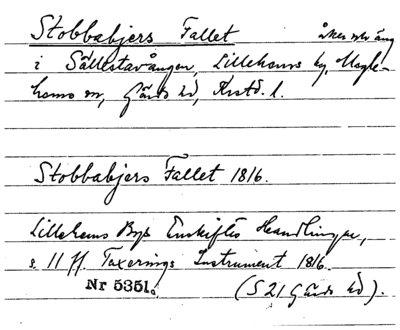 Stobbabjers Fallet åker och äng
i Sällestavången, Lillehems by, Magle-
hems sn, Gärds hd, Krstd. l.
Stobbabjers Fallet 1816.
Lillehems Bys Enskiftes Handlingar,
s. 11 ff. Taxerings Instrument 1816.
Nr 5351. (S 21 Gärds hd).